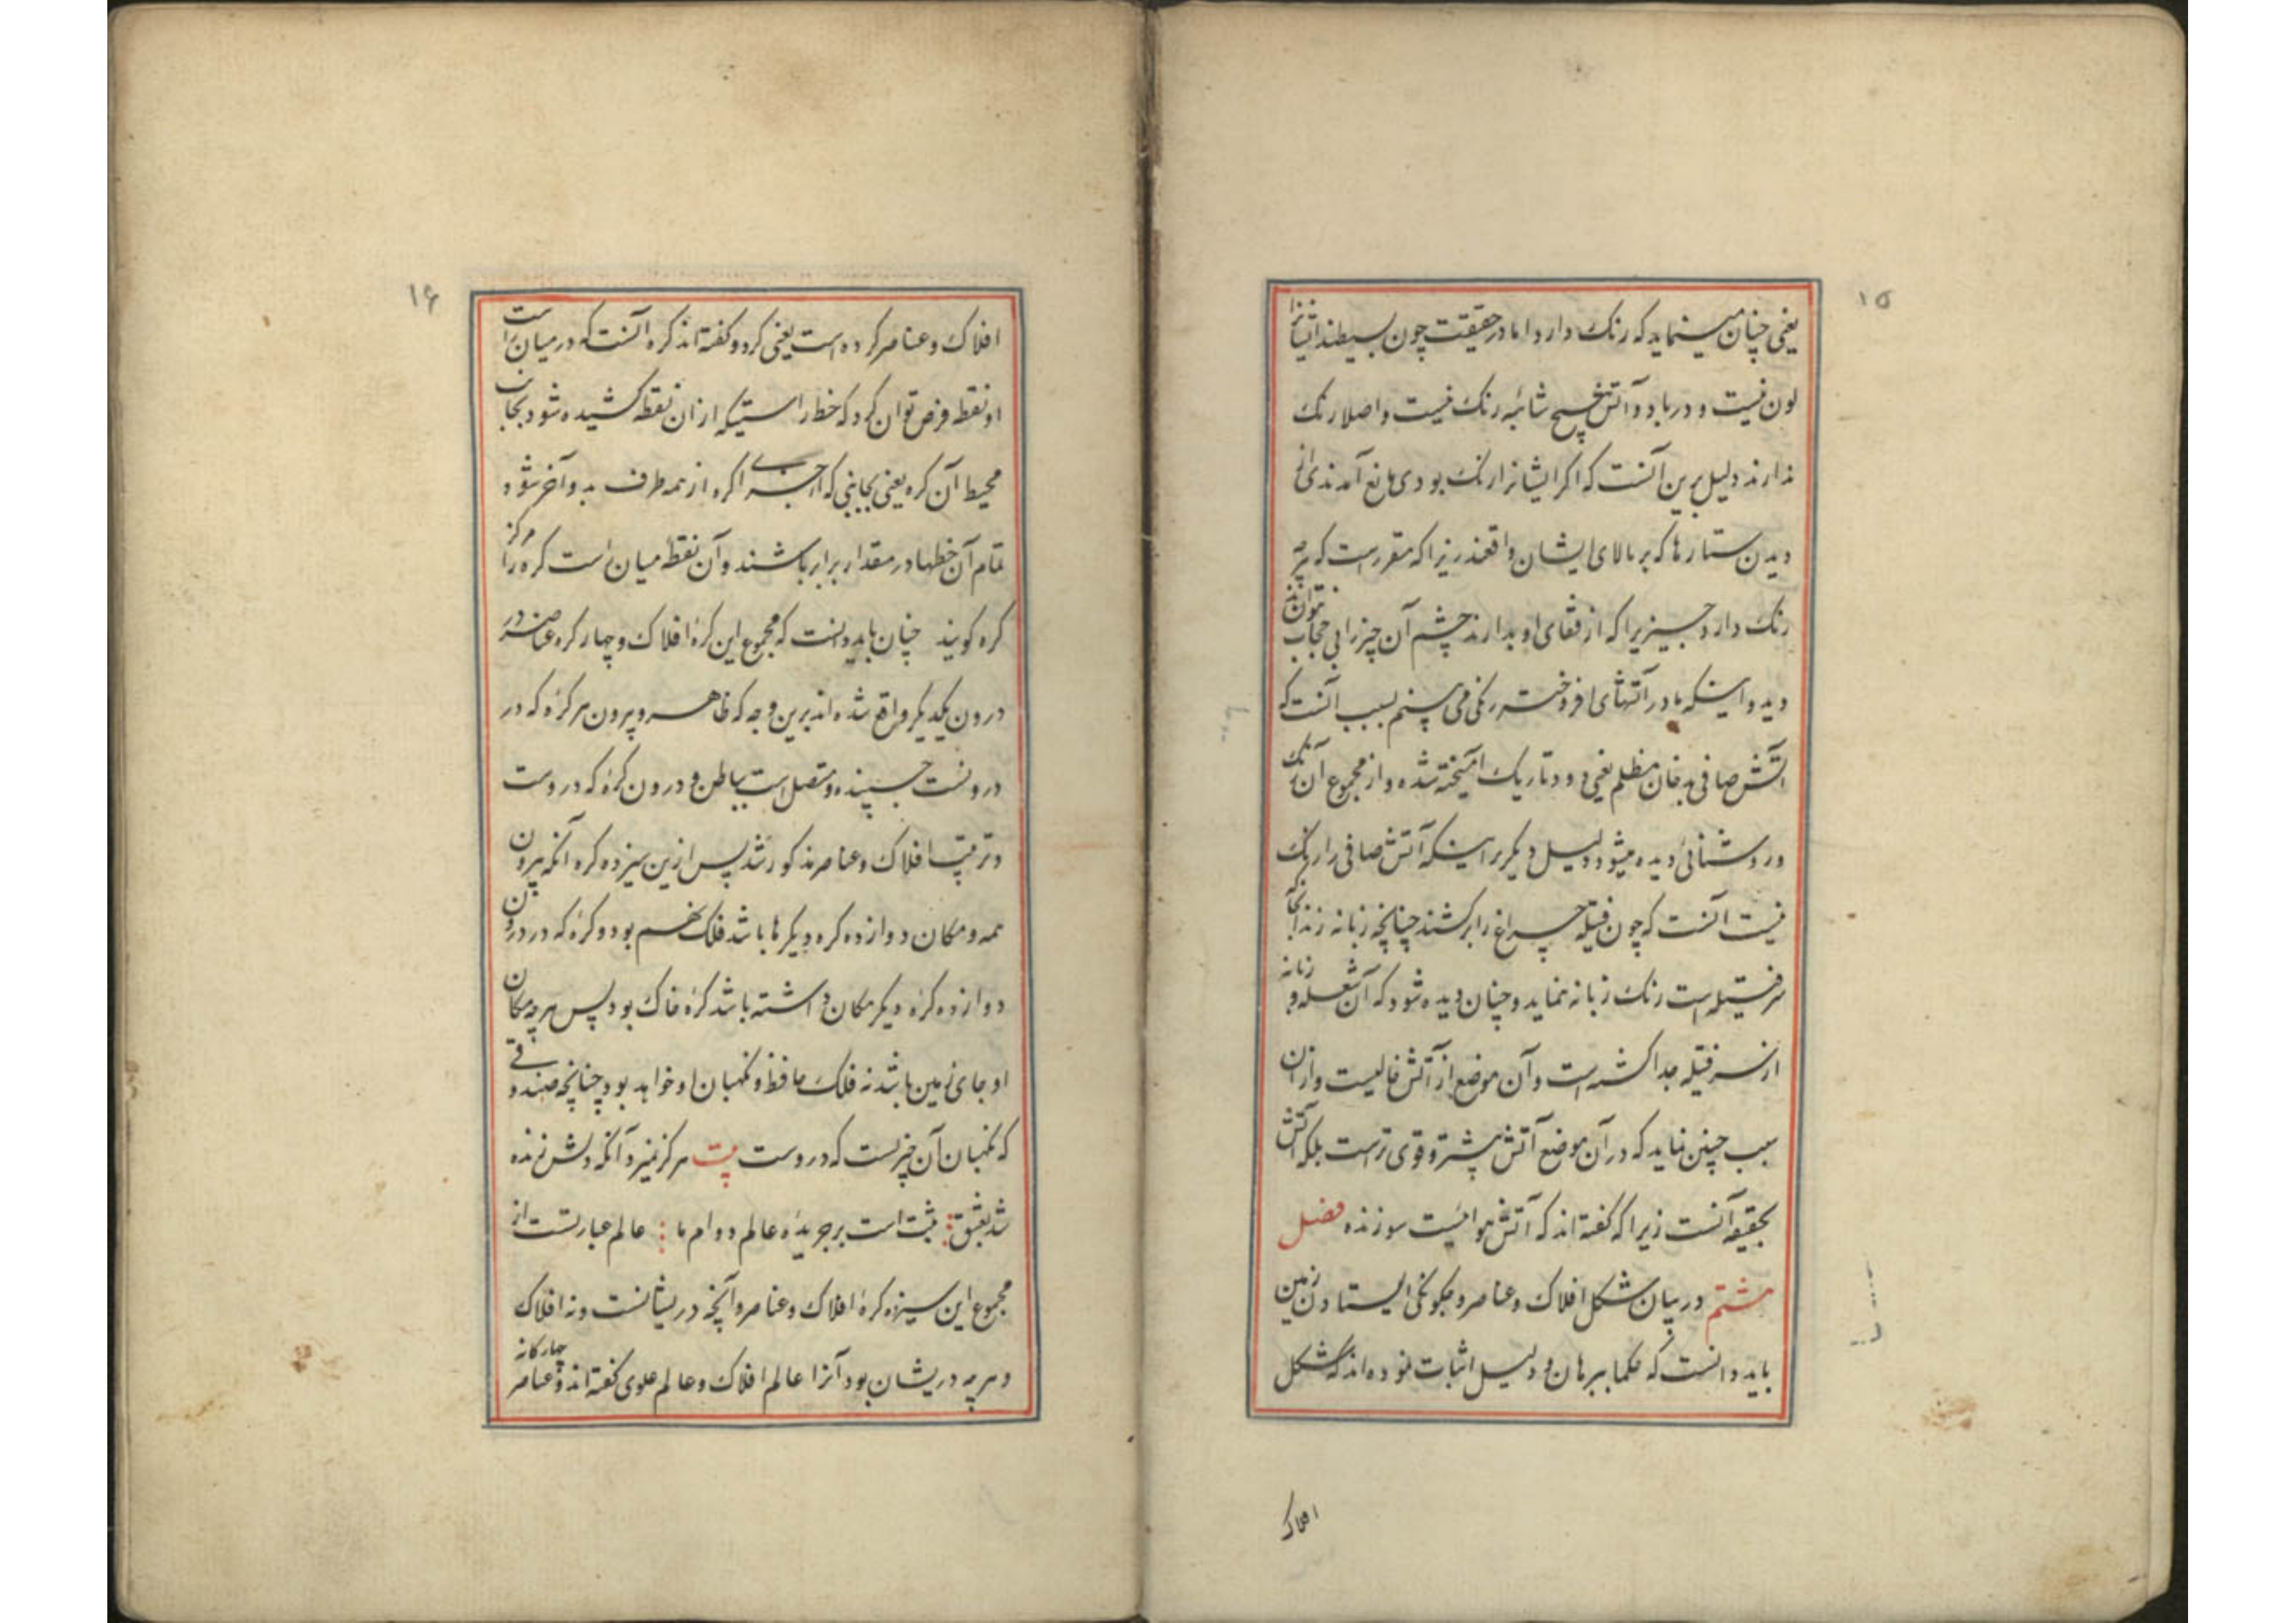 ۱۵
یعنی چنان مینماید که رنک دارد اما در حقیقت چون بسیطند ایشانرا
لون نیست و در باد و آتش هیچ شائبه رنک نیست و اصلا رنک
ندارند دلیل برین آنست که اکر ایشانرا رنک بودی مانع آمدندی از
دیدن ستارها که بر بالای ایشان واقعند زیرا که مقررست که هرچه
رنک دارد چیزیرا که از قفای او بدارند چشم آن چیز را بی حجاب نتواند
دید و اینکه ما در آتشهای افروخته رنکی می بینیم بسبب آنست که
آتش صافی بدخان مظلم یعنی دود تاریک آمیخته شده و از مجموع آن رنک
و روشنائی دیده میشود و دلیل دیکر بر اینکه آتش صافی را رنک
نیست آنست که چون فتیله چراغ را برکشند چنانچه زبانه زند آنجا که
سر فتیله است رنک زبانه ننماید و چنان دیده شود که آن شعله و زبانه
از سر فتیله جدا کشته است و آن موضع از آتش خالیست و از آن
سبب چنین نماید که در آن موضع آتش بیشتر و قوی ترست بلکه آتش
بحقیقه آنست زیرا که کفته اند که آتش هوائیست سوزنده فصل
هشتم در بیان شکل افلاک و عناصر و چکونکی ایستادن زمین
باید دانست که حکما ببرهان و دلیل اثبات نموده اند که شکل
افلاک
۱۶
افلاک و عناصر کرده است یعنی کرد و کفته اند کره آنست که در میان راست
او نقطه فرض توان کرد که خط راستیکه از آن نقطه کشیده شود بجانب
محیط آن کره یعنی بجانبی که اجزای کره از همه طرف بدو آخر شود
تمام آن خطها در مقدار برابر باشند و آن نقطه میان است کره را مرکز
کره کویند چنان باید دانست که مجموع این کرهٔ افلاک و چهار کره عناصر در
درون یکدیکر واقع شده اند برین وجه که ظاهر و بیرون هر کرهٔ که در
درونست چسپنده و متصل است بباطن و درون کرهٔ که در اوست
و ترتیب افلاک و عناصر مذکور شد پس ازین سیزده کره آنکه بیرون
همه و مکان دوازده کره دیکرها باشد فلک نهم بود و کرهٔ که در درون
دوازده کرهٔ دیکر مکان داشته باشد کرهٔ خاک بود پس هرچه مکان
او جای زمین باشد نه فلک حافظ و نکهبان او خواهد بود چنانچه صندوقی
که نکهبان آن چیزیست که دروست بیت هرکز نمیرد آنکه دلش زنده
شد بعشق : ثبت است بر جریدهٔ عالم دوام ما : عالم عبارتست از
مجموع این سیزده کرهٔ افلاک و عناصر و آنچه دریشانست و نه افلاک
و هرچه دریشان بود آنرا عالم افلاک و عالم علوی کفته اند و عناصر چهارکانه